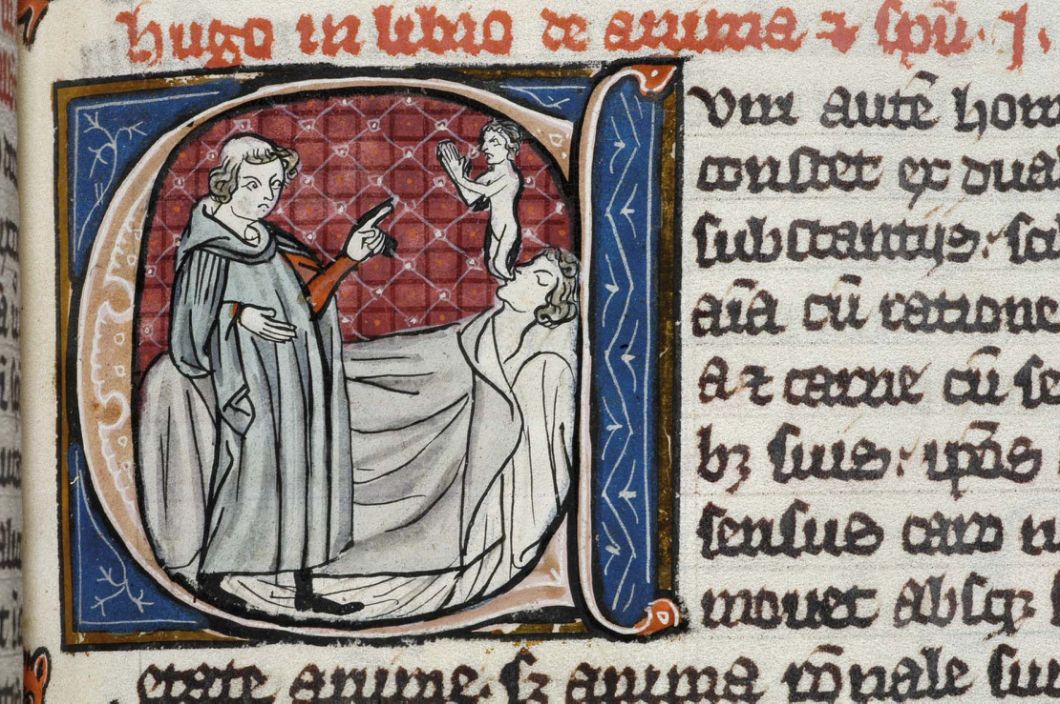 hugo in libro de anima ⁊ spū. I.
Cvm autē hom
constet ex dua
substantijs. sci
aīa cū ratione
a ⁊ carne cū se
bꝫ suis. ip̄os
sensus caro n
mouet absqꝫ
etate anime. sꝫ anima rōnale su